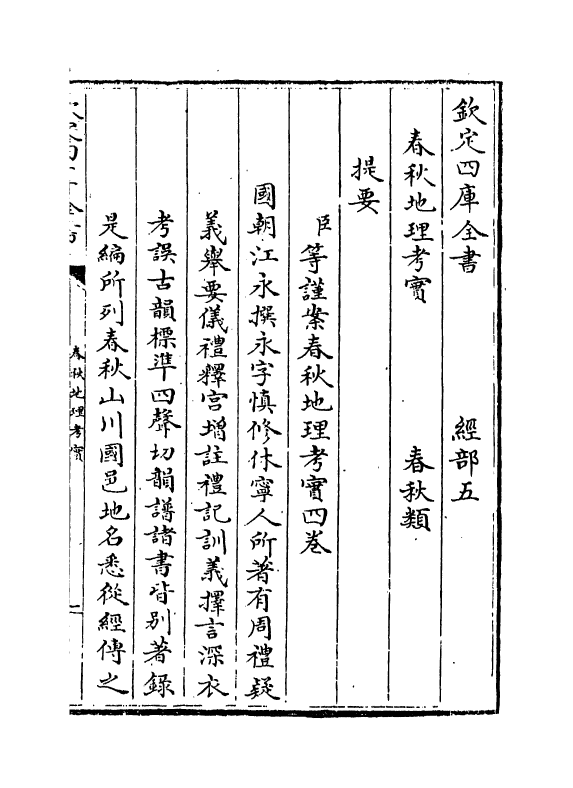 欽定四庫全書
春秋地理考實 經部五 春秋類
提要
臣等謹案春秋地理考實四卷
國朝江永撰永字慎修休寧人所著有周禮疑
義舉要儀禮釋宫增註禮記訓義擇言深衣
考誤古韻標準四聲切韻譜諸書皆别著錄
是編所列春秋山川國邑地名悉從經傳之
春秋地理考實